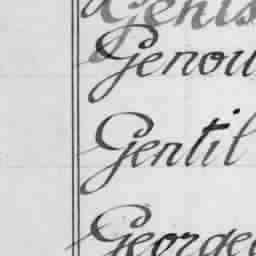 Genis
Genou
Gentil
George